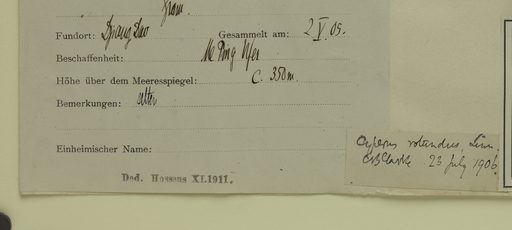 Fundort: Djieng Dao Gesammelt am: 2 V. 05.
Beschaffenheit: Me Ping Ufer
Höhe über dem Meeresspiegel: c. 350 m.
Bemerkungen:
Einheimischer Name:
Ded. Hosseus XI.1911.
Cyperus rotundus Linn.
CBClarke 23 July 1906